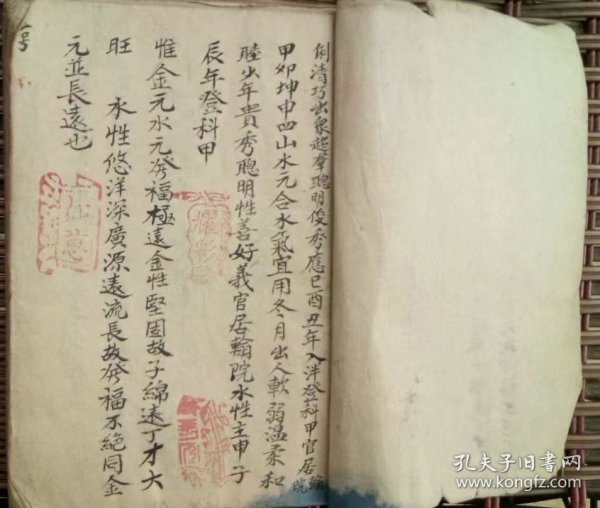 俐清巧出衆超羣聰明俊秀應巳酉丑年入泮登科甲官居翰院
甲卯坤申四山水元合水氣宜用冬月出人軟弱溫柔和
睦少年貴秀聰明性善好義官居翰院水性主申子
辰年登科甲
惟金元水元發福極遠金性堅固故子綿遠丁才大
旺 水性悠洋深廣源遠流長故發福不絕同金
元並長遠也
孔夫子旧书网
www.kongfz.com